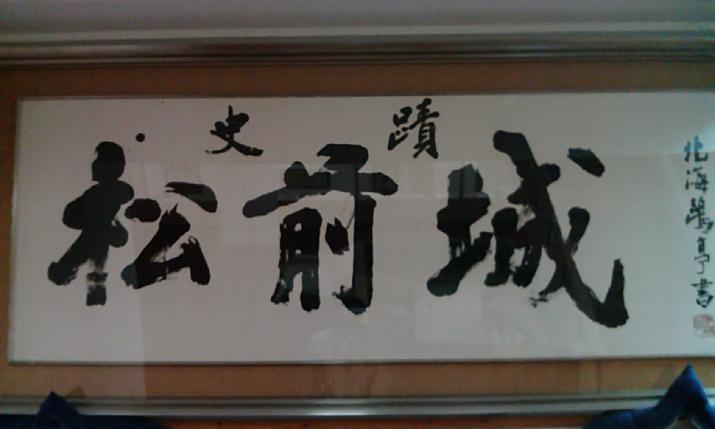 史蹟
松前城
北海鶴亭書